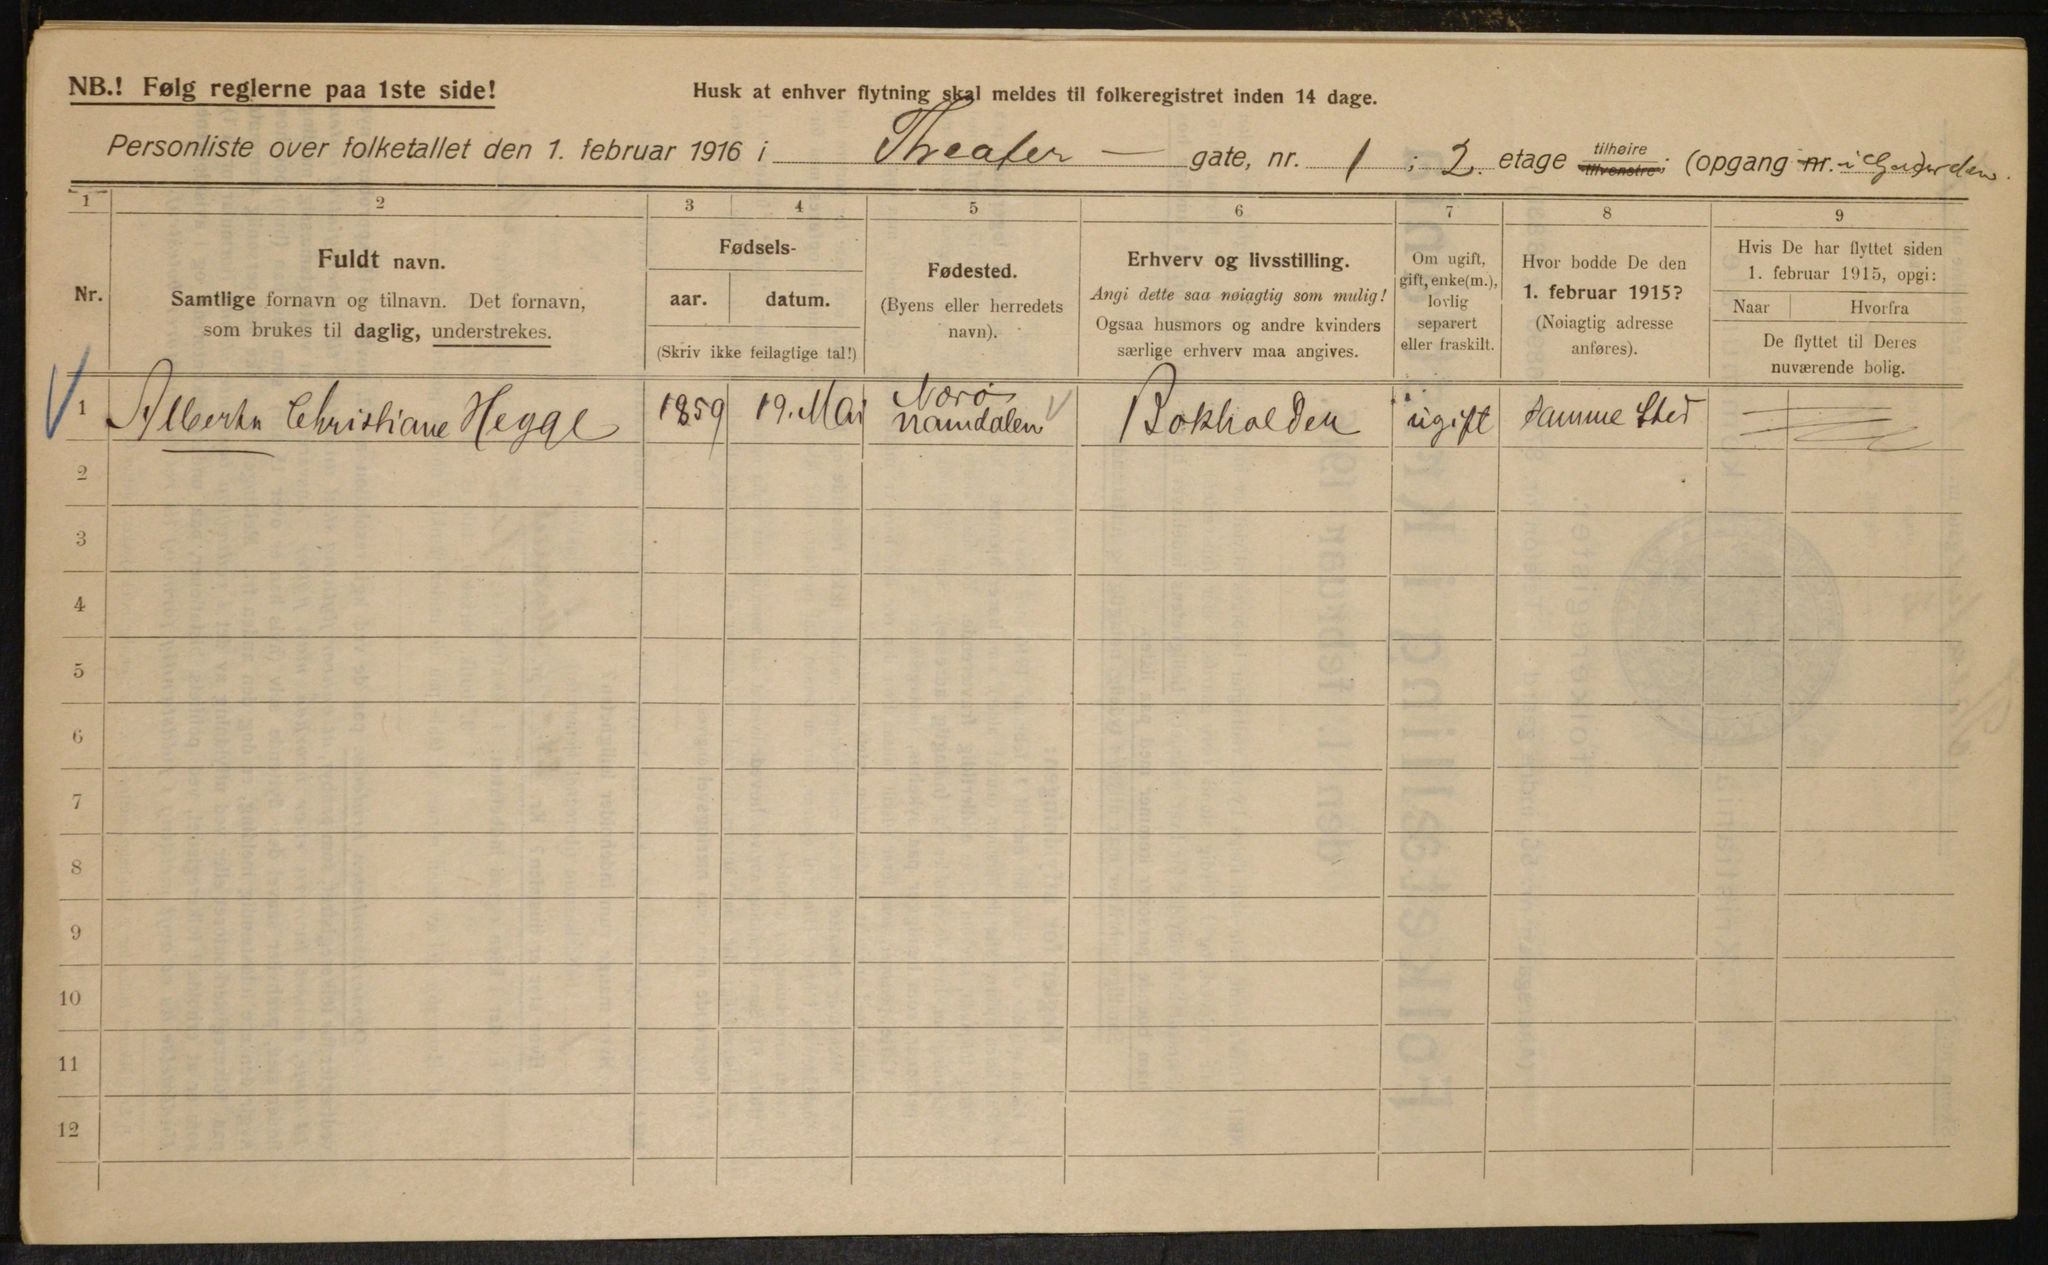 NB.! Følg reglerne paa 1ste side!
Husk at enhver flytning skal meldes til folkeregistret inden 14 dage.
Personliste over folketallet den 1. februar 1916 i Theater — gate, nr. 1 ; 2. etage tilhøire tilvenstre; (opgang nr. i
1 2 3 4 5 6 7 8 9
Nr.
Fuldt navn.
Samtlige fornavn og tilnavn. Det fornavn,
som brukes til daglig, understrekes.
Fødsels-
aar. datum.
(Skriv ikke feilagtige tal!)
Fødested.
(Byens eller herredets
navn).
Erhverv og livsstilling.
Angi dette saa nøiagtig som mulig!
Ogsaa husmors og andre kvinders
særlige erhverv maa angives.
Om ugift,
gift, enke(m.),
lovlig
separert
eller fraskilt.
Hvor bodde De den
1. februar 1915?
(Nøiagtig adresse
anføres).
Hvis De har flyttet siden
1. februar 1915, opgi:
Naar Hvorfra
De flyttet til Deres
nuværende bolig.
1 Alberta Christiane Hegge 1859 19. Mai Nærø Namdalen Bokholder ugift samme Sted
2
3
4
5
6
7
8
9
10
11
12